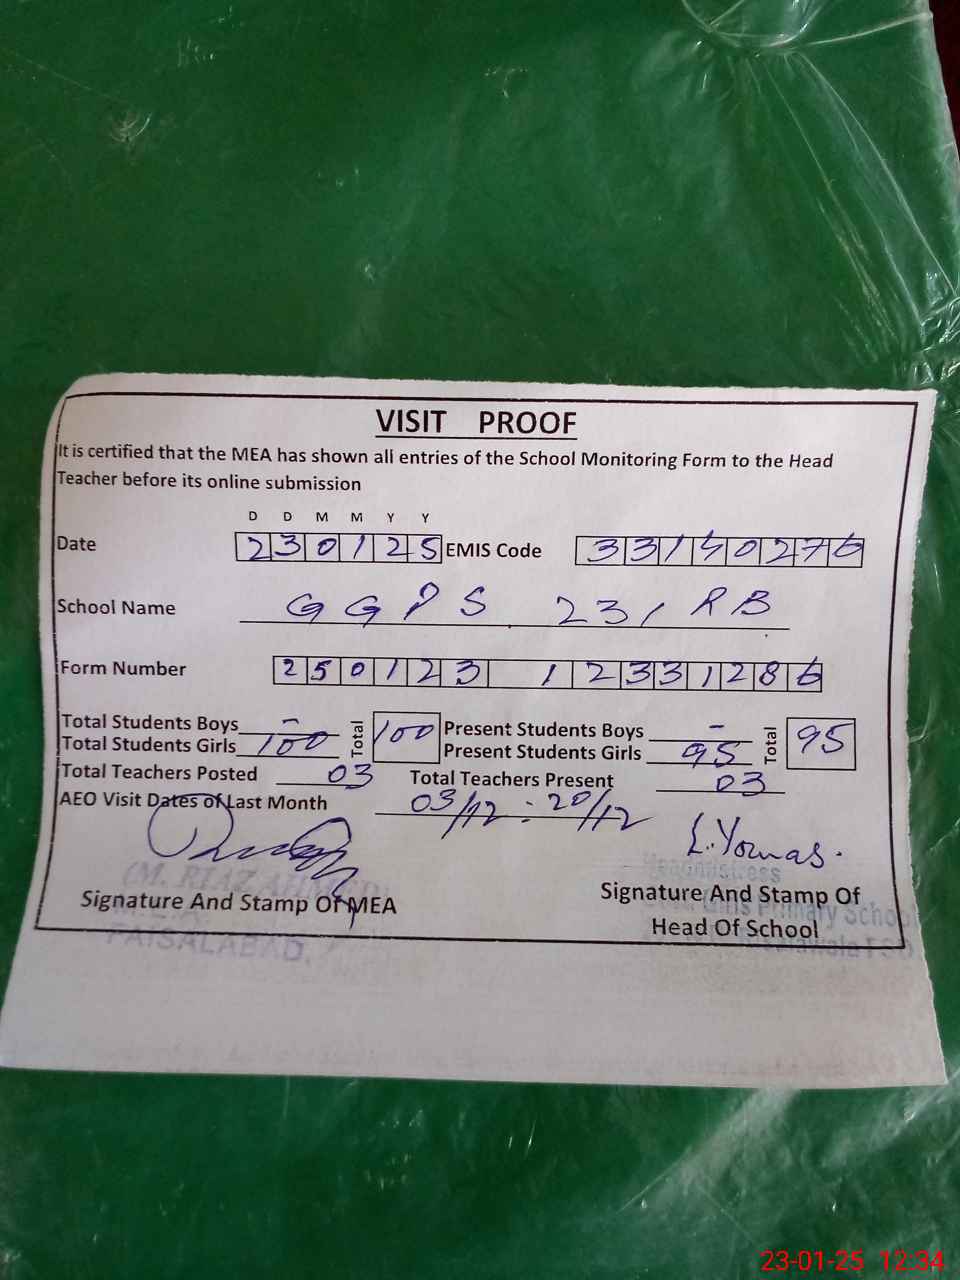 VISIT PROOF
It is certified that the MEA has shown all entries of the School Monitoring Form to the Head
Teacher before its online submission
D D M M Y Y
Date 230125 EMIS Code 33140276
School Name GGPS 231 RB
Form Number 250123 12331286
Total Students Boys - Total 100 Present Students Boys - Total 95
Total Students Girls 100 Present Students Girls 95
Total Teachers Posted 03 Total Teachers Present 03
AEO Visit Dates of Last Month 03/12 : 20/12
(M. RIAZ AHMED)
Headmistress
Signature And Stamp Of MEA Signature And Stamp Of
Girls Primary School
Head Of School
FAISALABAD.
23-01-25 12:34